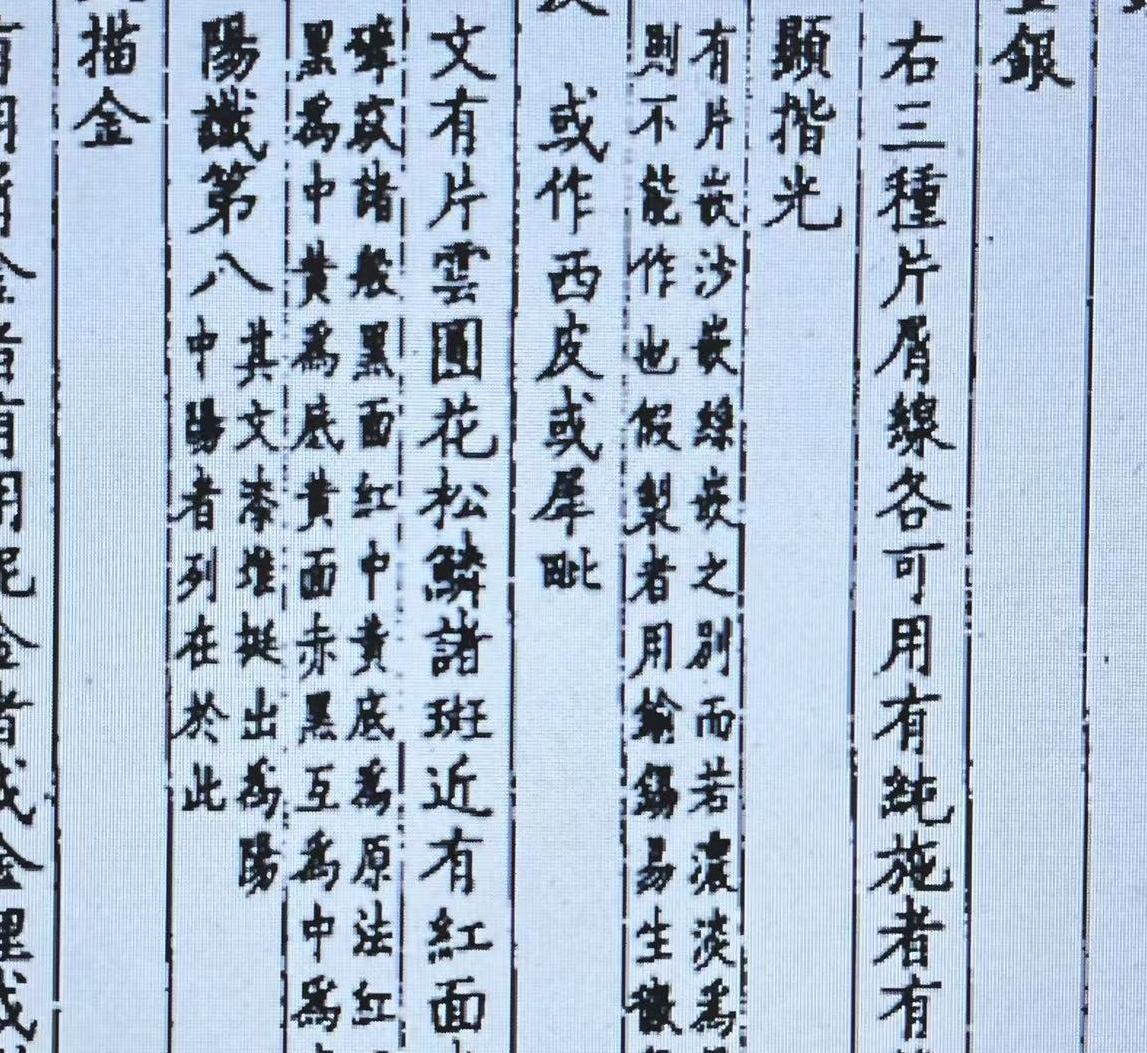 銀
右三種片屑線各可用有純施者有
顯揩光
有片嵌沙嵌絲嵌之別而若濃淡為
則不能作也假製者用鍮錫易生黴
或作西皮或犀毗
文有片雲圓花松鱗諸斑近有紅面
諸般黑面紅中黃底為原法紅
黑為中黃為底黃面赤黑互為中為
陽識第八
其文漆堆挺出為陽
中陽者列在於此
描金